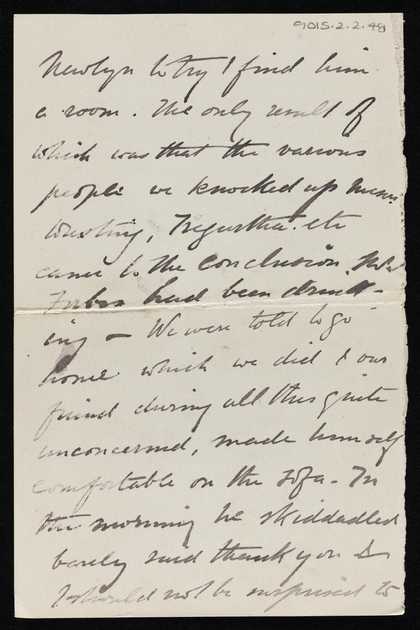 9015.2.2.49
Newlyn to try & find him
a room. The only result of
which was that the various
people we knocked up Messrs
Tregurtha. etc
came to the conclusion that
Forbes had been drink-
ing — We were told to go
home which we did & our
friend during all this quite
unconcerned, made himself
comfortable on the sofa. In
the morning he skidaddled
barely said thank you &
I should not be surprised to